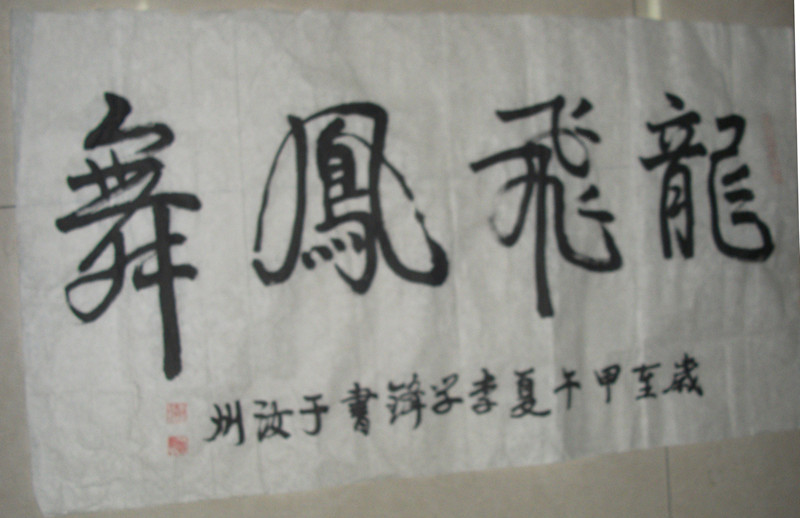 龍飛鳳舞
歲至甲午夏李学鋒書于汝州